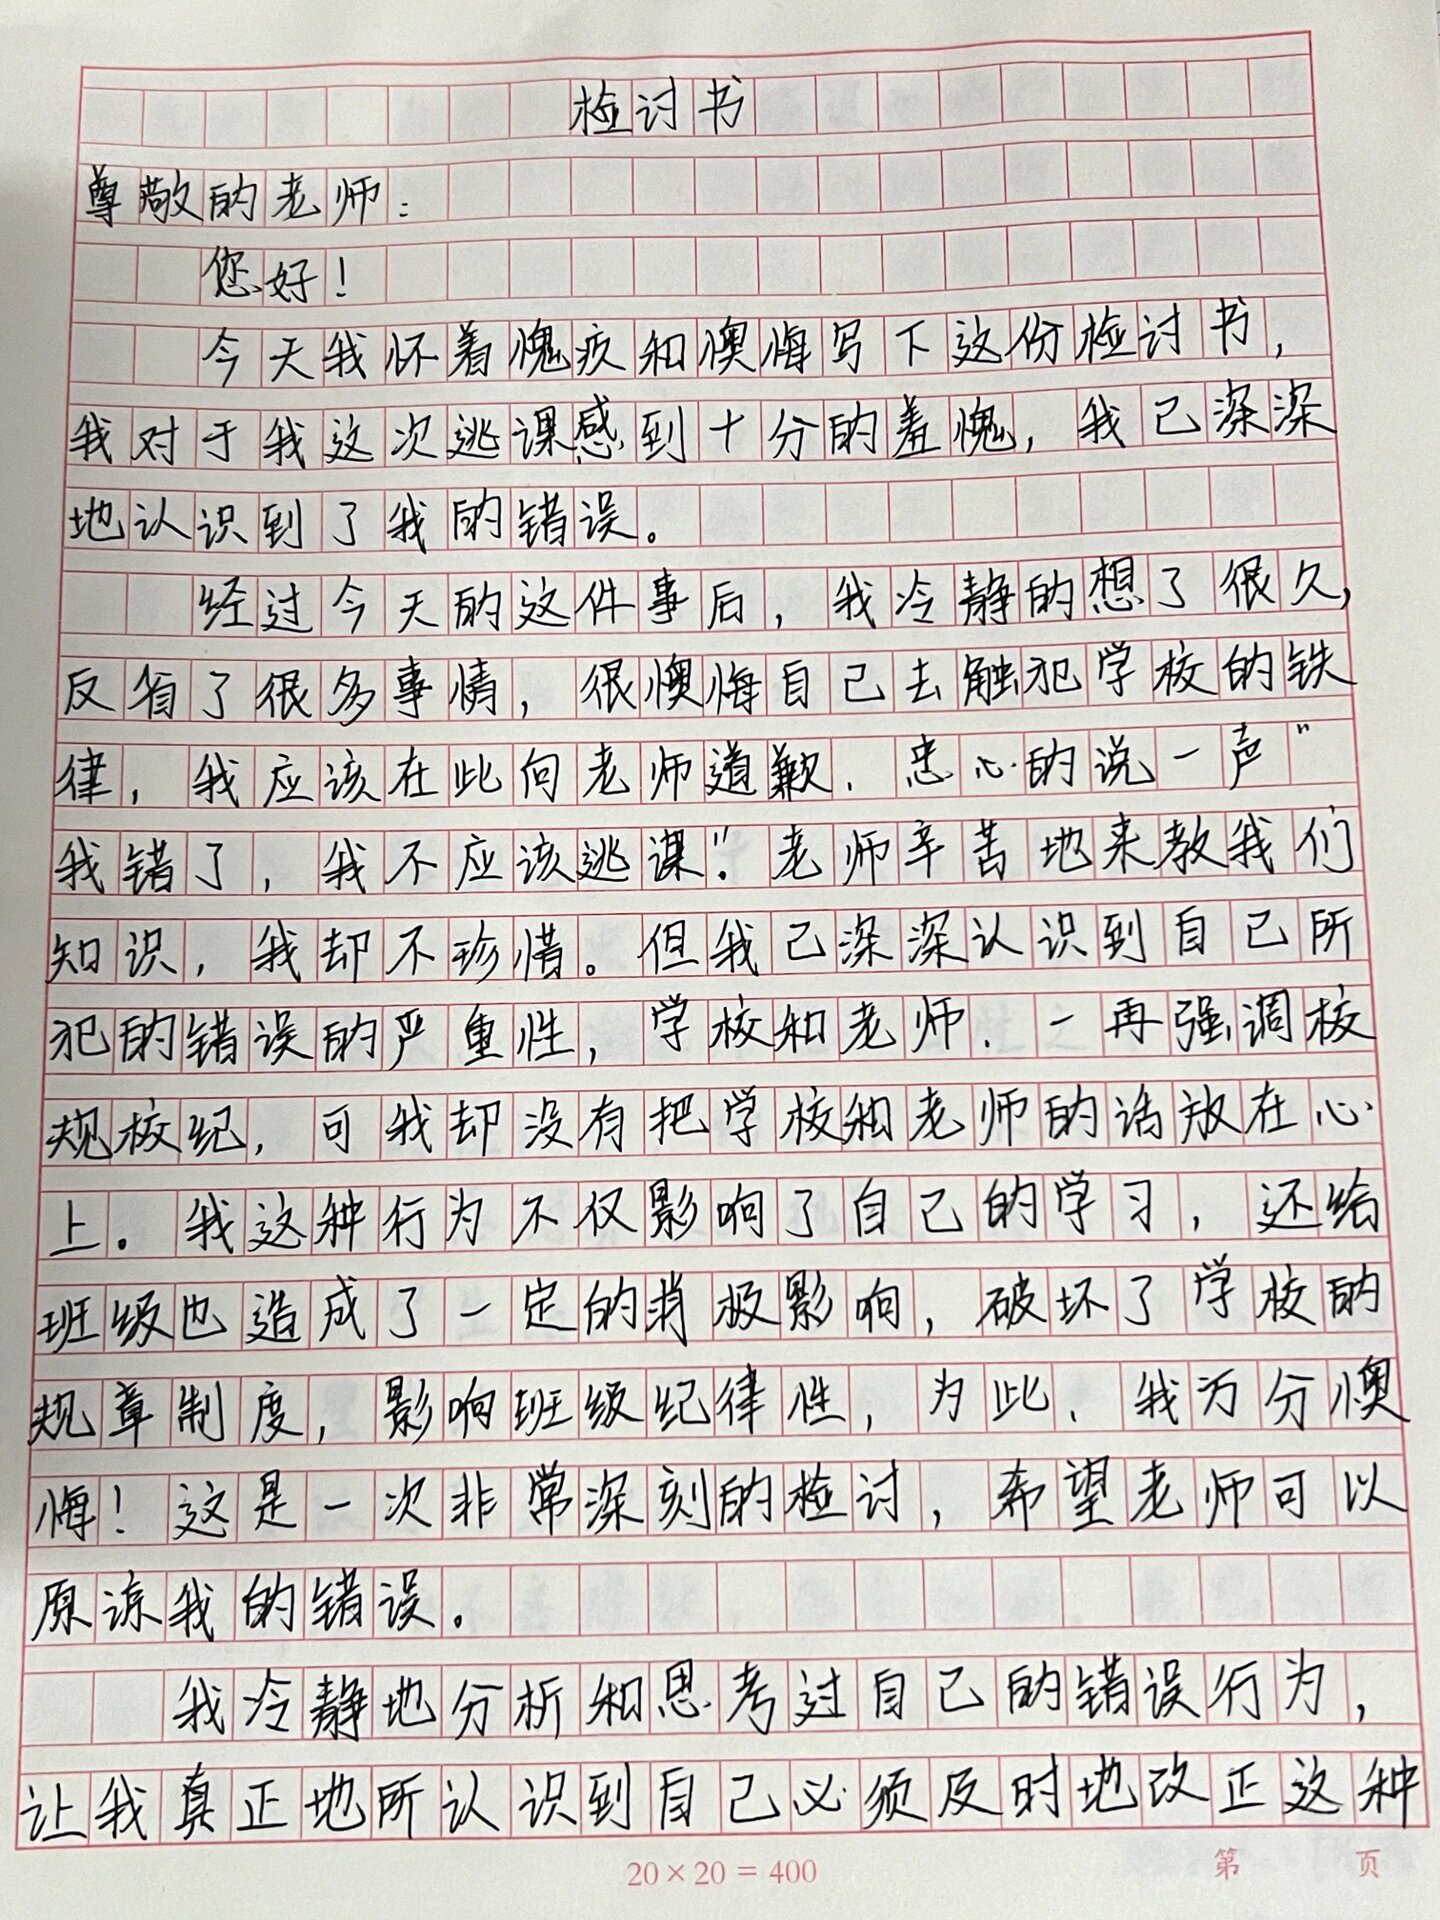 检讨书
尊敬的老师：
您好！
今天我怀着愧疚和懊悔写下这份检讨书，
我对于我这次逃课感到十分的羞愧，我已深深
地认识到了我的错误。
经过今天的这件事后，我冷静的想了很久，
反省了很多事情，很懊悔自己去触犯学校的铁
律，我应该在此向老师道歉．忠心的说一声"
我错了，我不应该逃课"．老师辛苦地来教我们
知识，我却不珍惜。但我已深深认识到自己所
犯的错误的严重性，学校和老师．一再强调校
规校纪，可我却没有把学校和老师的话放在心
上。我这种行为不仅影响了自己的学习，还给
班级也造成了一定的消极影响，破坏了学校的
规章制度，影响班级纪律性，为此．我万分懊
悔！这是一次非常深刻的检讨，希望老师可以
原谅我的错误。
我冷静地分析和思考过自己的错误行为，
让我真正地所认识到自己必须及时地改正这种
20×20=400
第 页